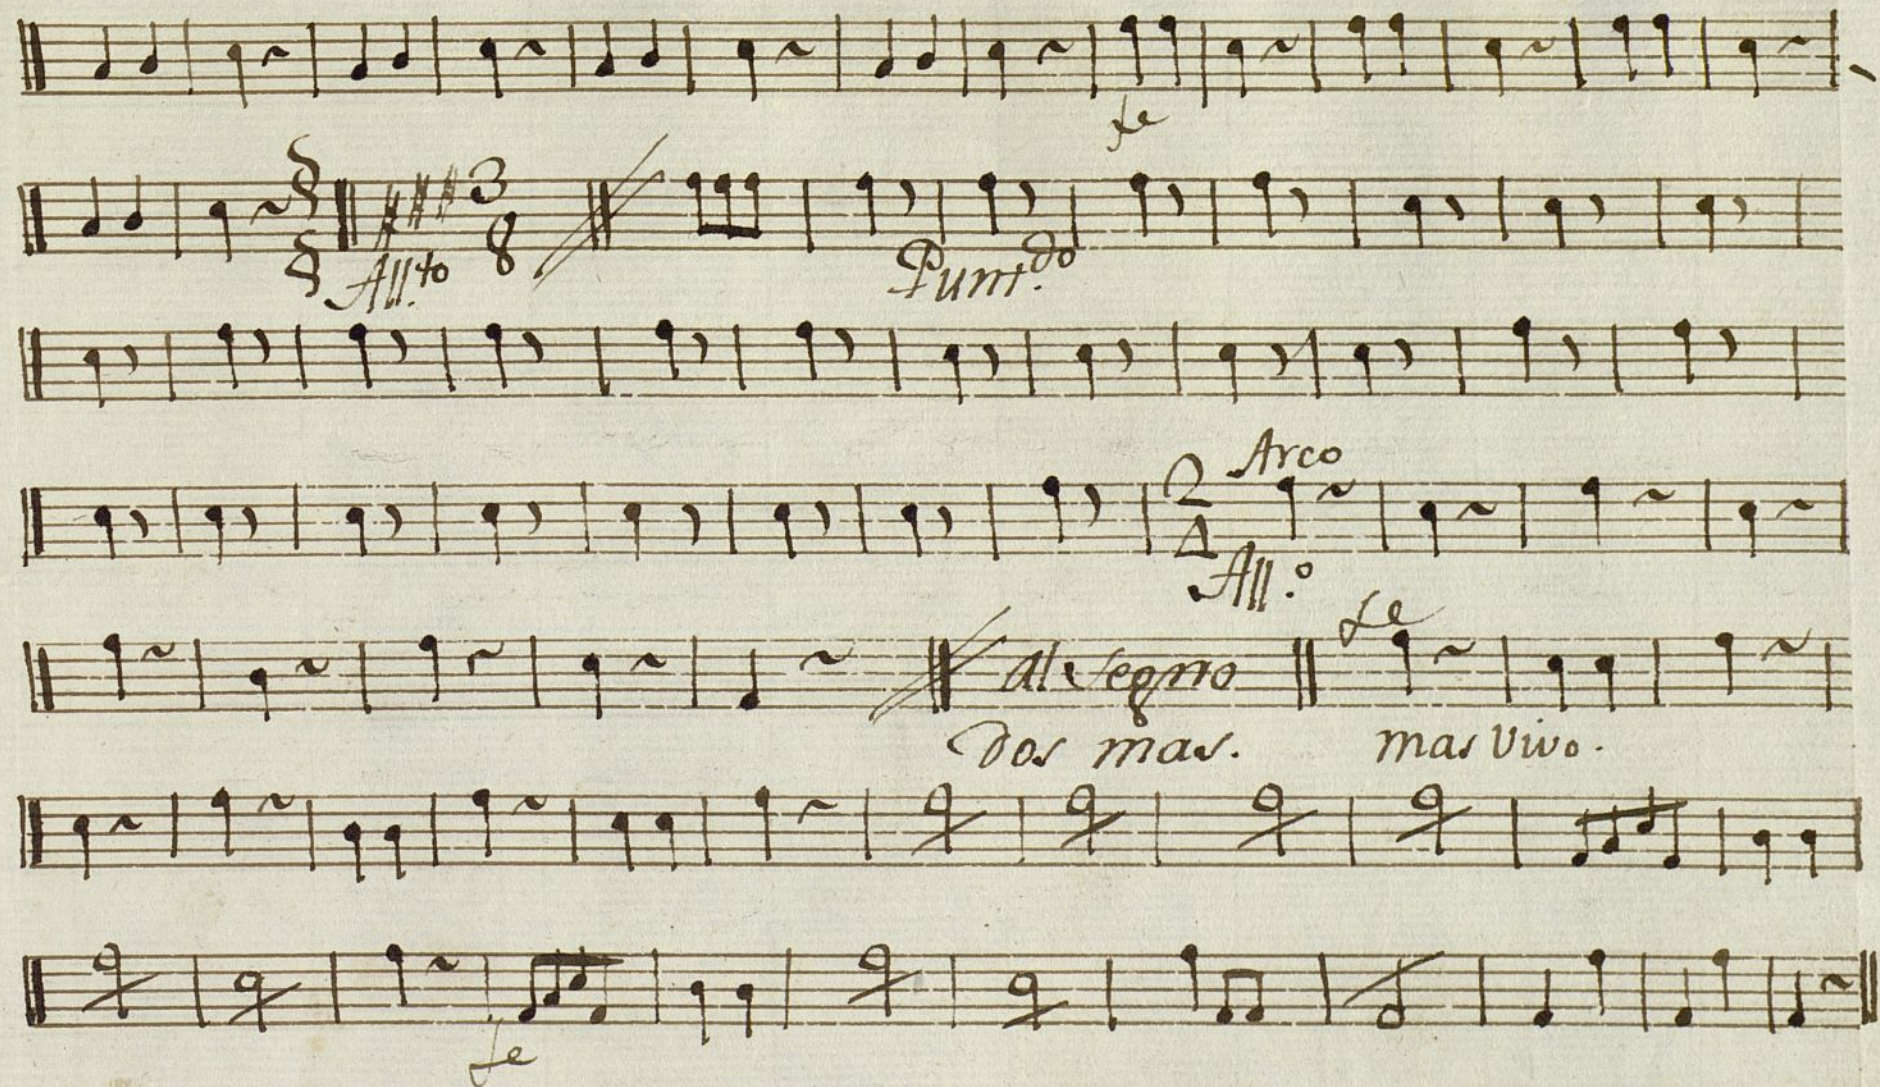 fe
All.to 3 8 Punt.do
Arco
2 4
All.o
fe
al Segno
Dos mas. mas vivo.
fe